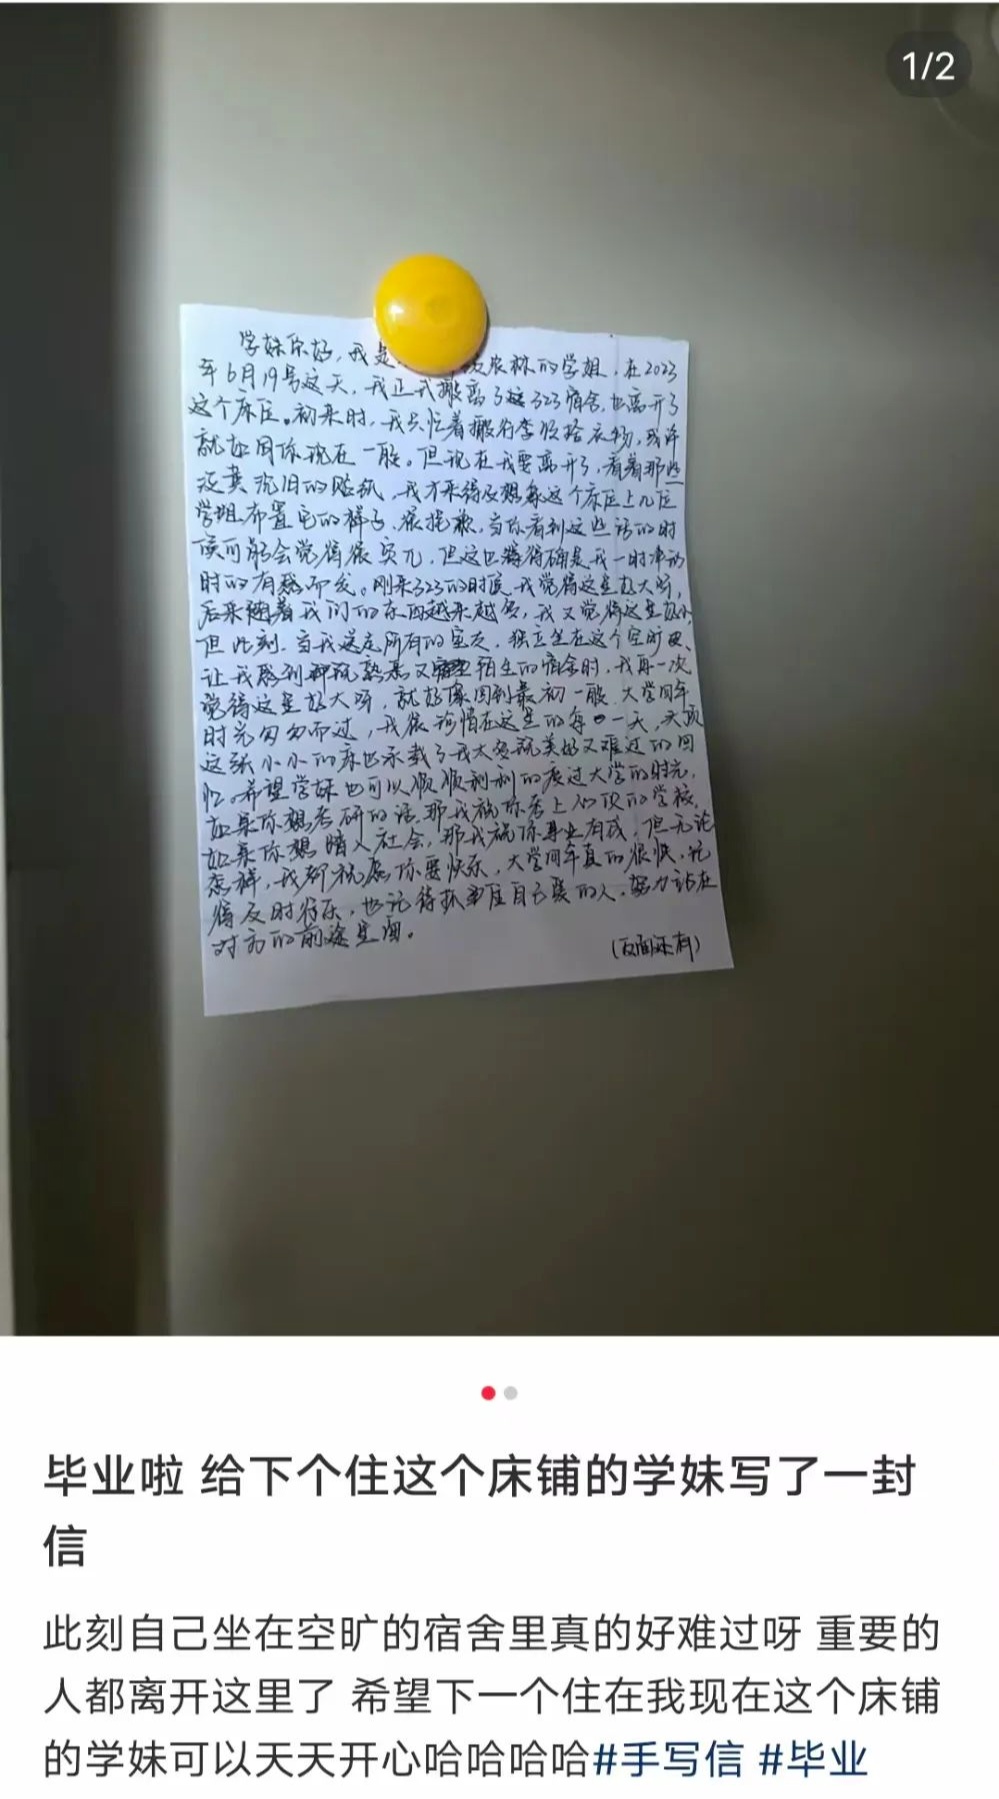 1/2
学妹你好，我是 农林的学姐，在2023
年6月19号这天，我正式搬离了这323宿舍，也离开了
这个床位。初来时，我只忙着搬行李收拾衣物，或许
就如同你现在一般。但现在我要离开了，看着那些
泛黄沉旧的贴纸，我才来得及想象这个床位上几位
学姐布置它的样子。很抱歉，当你看到这些话的时
候可能会觉得很突兀，但这也 确是我一时冲动
时的有感而发。刚来323的时候，我觉得这里好大呀，
后来随着我们的东西越来越多，我又觉得这里好小，
但此刻，当我送走所有的室友，独立坐在这个空旷
让我感到既熟悉又 陌生的宿舍时，我再一次
觉得这里好大呀，就好像回到最初一般。大学四年
时光匆匆而过，我很珍惜在这里的每一天，
这张小小的床也承载了我太多既美好又难过的回
忆。希望学妹也可以顺顺利利的度过大学的时光，
如果你想考研的话，那我祝你考上心仪的学校，
如果你想踏入社会，那我祝你事业有成，但无论
怎样，我都祝愿你要快乐，大学四年真的很快，记
得及时行乐，也记得抓牢住自己爱的人，努力站在
对方的前途里面。
（反面还有）
毕业啦 给下个住这个床铺的学妹写了一封
信
此刻自己坐在空旷的宿舍里真的好难过呀 重要的
人都离开这里了 希望下一个住在我现在这个床铺
的学妹可以天天开心哈哈哈哈#手写信 #毕业